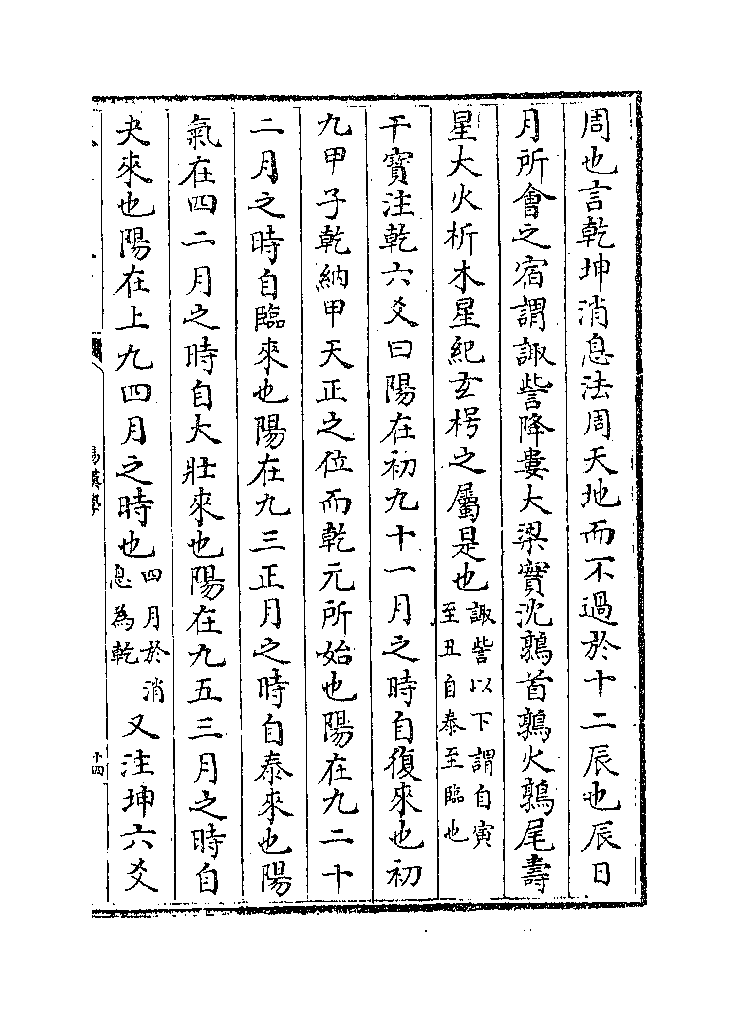 周也言乾坤消息法周天地而不過於十二辰也辰日
月所會之宿謂諏訾降婁大梁實沈鶉首鶉火鶉尾壽
星大火析木星紀玄枵之屬是也諏訾以下謂自寅至丑自泰至臨也
干寶注乾六爻曰陽在初九十一月之時自復來也初
九甲子乾納甲天正之位而乾元所始也陽在九二十
二月之時自臨來也陽在九三正月之時自泰來也陽
氣在四二月之時自大壯來也陽在九五三月之時自
夬來也陽在上九四月之時也四月於消息為乾又注坤六爻
易漢學
十四